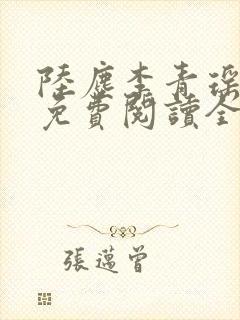 陸塵李青瑤
免費閱讀全
張邁曾